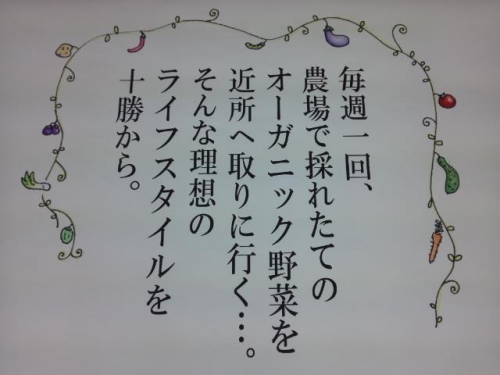 毎週一回、
農場で採れたての
オーガニック野菜を
近所へ取りに行く…。
そんな理想の
ライフスタイルを
十勝から。